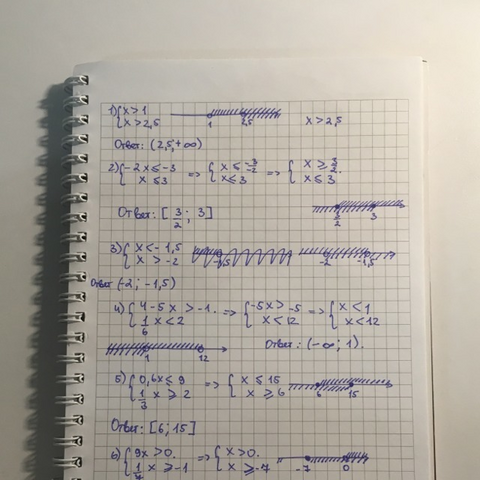 1) {x > 1
{x > 2,5
1 2,5
x > 2,5
Ответ: (2,5; +∞)
2) {-2x ≤ -3 => {x ≤ -3/-2 => {x ≥ 3/2.
{x ≤ 3 {x ≤ 3 {x ≤ 3.
Ответ: [3/2; 3]
3/2 3
3) {x < -1,5
{x > -2
-1,5
-2 -1,5
Ответ (-2; -1,5)
4) {4 - 5x > -1. => {-5x > -5 => {x < 1
{1/6 x < 2 {x < 12 {x < 12
1 12
Ответ: (-∞; 1).
5) {0,6x ≤ 9 => {x ≤ 15
{1/3 x ≥ 2 {x ≥ 6
6 15
Ответ: [6; 15]
6) {9x > 0. => {x > 0.
{1/7 x ≥ -1 {x ≥ -7
-7 0